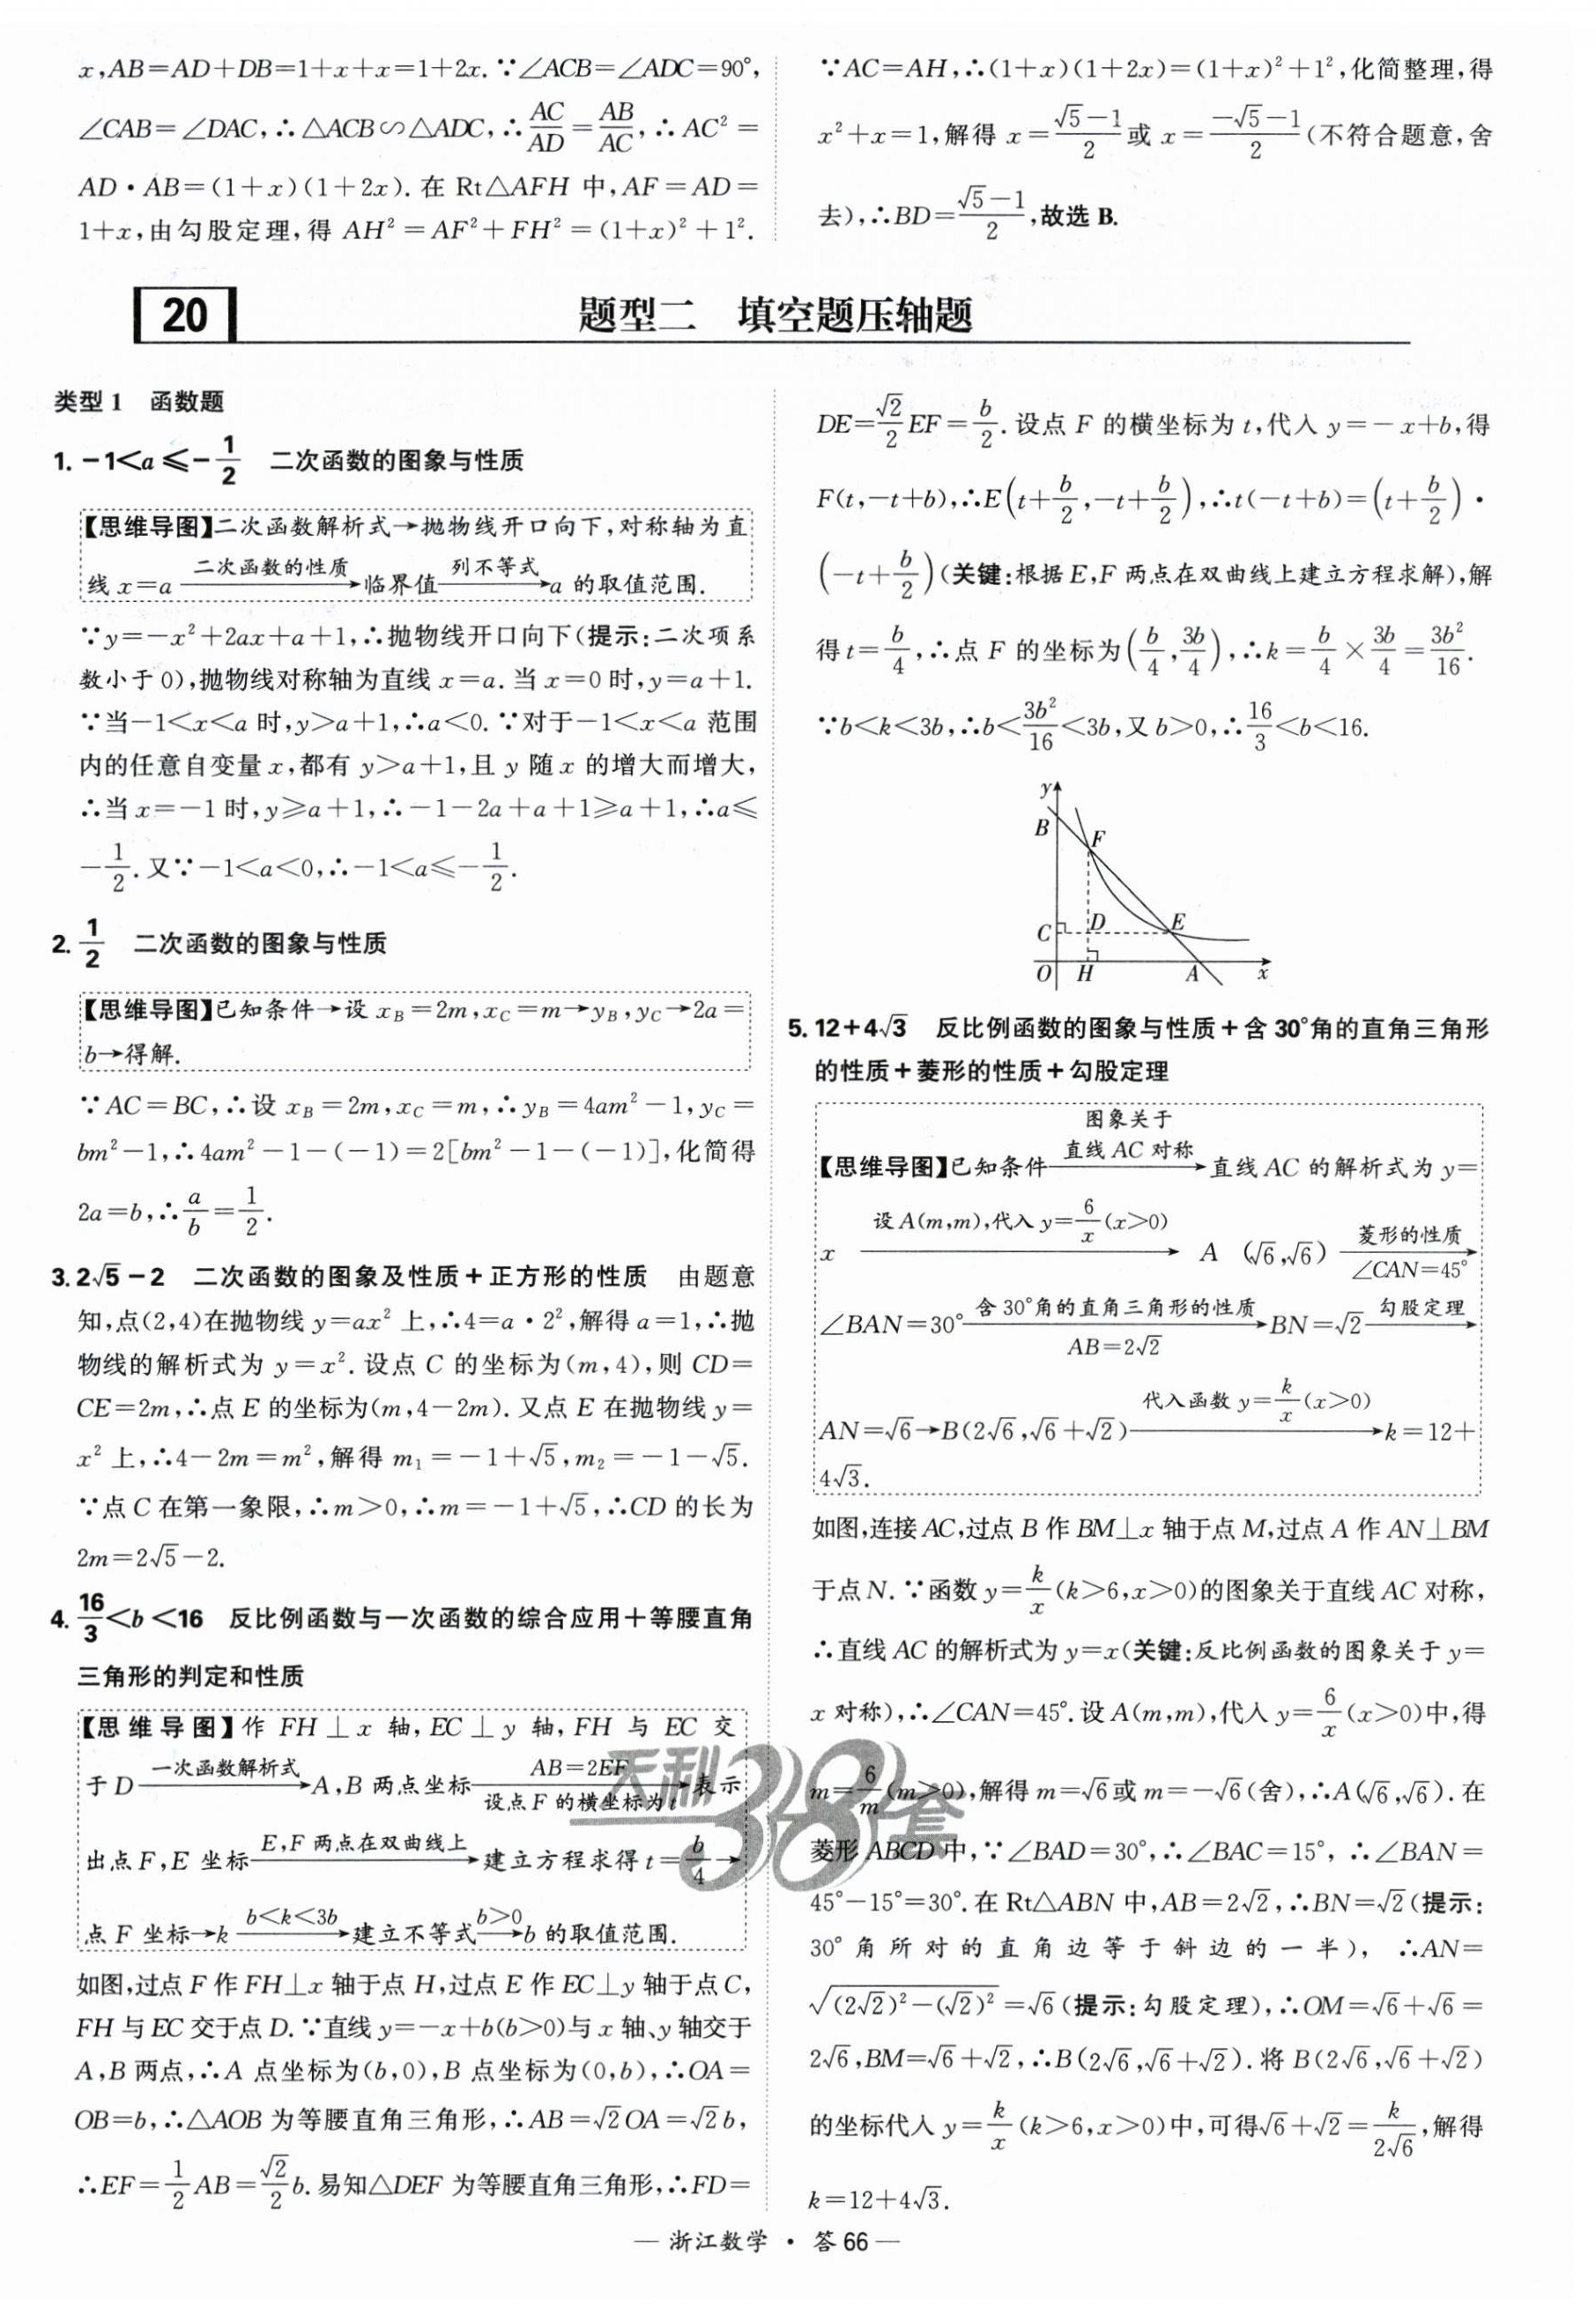 x,AB=AD+DB=1+x+x=1+2x.∵∠ACB=∠ADC=90°,
∠CAB=∠DAC,∴△ACB∽△ADC,∴AC/AD=AB/AC,∴AC²=
AD·AB=(1+x)(1+2x).在Rt△AFH中,AF=AD=
1+x,由勾股定理,得AH²=AF²+FH²=(1+x)²+1².
∵AC=AH,∴(1+x)(1+2x)=(1+x)²+1²,化简整理,得
x²+x=1,解得x=(√5-1)/2或x=(-√5-1)/2(不符合题意,舍
去),∴BD=(√5-1)/2,故选B.
20 题型二 填空题压轴题
类型1 函数题
1.-1<a≤-1/2 二次函数的图象与性质
【思维导图】二次函数解析式→抛物线开口向下,对称轴为直
线x=a 二次函数的性质→临界值 列不等式→a的取值范围.
∵y=-x²+2ax+a+1,∴抛物线开口向下(提示:二次项系
数小于0),抛物线对称轴为直线x=a.当x=0时,y=a+1.
∵当-1<x<a时,y>a+1,∴a<0.∵对于-1<x<a范围
内的任意自变量x,都有y>a+1,且y随x的增大而增大,
∴当x=-1时,y≥a+1,∴-1-2a+a+1≥a+1,∴a≤
-1/2.又∵-1<a<0,∴-1<a≤-1/2.
2.1/2 二次函数的图象与性质
【思维导图】已知条件→设x_B=2m,x_C=m→y_B,y_C→2a=
b→得解.
∵AC=BC,∴设x_B=2m,x_C=m,∴y_B=4am²-1,y_C=
bm²-1,∴4am²-1-(-1)=2[bm²-1-(-1)],化简得
2a=b,∴a/b=1/2.
3.2√5-2 二次函数的图象及性质+正方形的性质 由题意
知,点(2,4)在抛物线y=ax²上,∴4=a·2²,解得a=1,∴抛
物线的解析式为y=x².设点C的坐标为(m,4),则CD=
CE=2m,∴点E的坐标为(m,4-2m).又点E在抛物线y=
x²上,∴4-2m=m²,解得m₁=-1+√5,m₂=-1-√5.
∵点C在第一象限,∴m>0,∴m=-1+√5,∴CD的长为
2m=2√5-2.
4.16/3<b<16 反比例函数与一次函数的综合应用+等腰直角
三角形的判定和性质
【思维导图】作FH⊥x轴,EC⊥y轴,FH与EC交
于D 一次函数解析式→A,B两点坐标 AB=2EF 设点F的横坐标为t→表示
出点F,E坐标 E,F两点在双曲线上→建立方程求得t=b/4→
点F坐标→k b<k<3b→建立不等式 b>0→b的取值范围.
如图,过点F作FH⊥x轴于点H,过点E作EC⊥y轴于点C,
FH与EC交于点D.∵直线y=-x+b(b>0)与x轴、y轴交于
A,B两点,∴A点坐标为(b,0),B点坐标为(0,b),∴OA=
OB=b,∴△AOB为等腰直角三角形,∴AB=√2OA=√2b,
∴EF=1/2AB=√2/2b.易知△DEF为等腰直角三角形,∴FD=
DE=√2/2EF=b/2.设点F的横坐标为t,代入y=-x+b,得
F(t,-t+b),∴E(t+b/2,-t+b/2),∴t(-t+b)=(t+b/2)·
(-t+b/2)(关键:根据E,F两点在双曲线上建立方程求解),解
得t=b/4,∴点F的坐标为(b/4,3b/4),∴k=b/4×3b/4=3b²/16.
∵b<k<3b,∴b<3b²/16<3b,又b>0,∴16/3<b<16.
y
B
F
C D E
O H A x
5.12+4√3 反比例函数的图象与性质+含30°角的直角三角形
的性质+菱形的性质+勾股定理
【思维导图】已知条件 图象关于直线AC对称→直线AC的解析式为y=
x 设A(m,m),代入y=6/x(x>0)→A(√6,√6) 菱形的性质 ∠CAN=45°→
∠BAN=30° 含30°角的直角三角形的性质 AB=2√2→BN=√2 勾股定理→
AN=√6→B(2√6,√6+√2) 代入函数y=k/x(x>0)→k=12+
4√3.
如图,连接AC,过点B作BM⊥x轴于点M,过点A作AN⊥BM
于点N.∵函数y=k/x(k>6,x>0)的图象关于直线AC对称,
∴直线AC的解析式为y=x(关键:反比例函数的图象关于y=
x对称),∴∠CAN=45°.设A(m,m),代入y=6/x(x>0)中,得
m=6/m(m>0),解得m=√6或m=-√6(舍),∴A(√6,√6).在
菱形ABCD中,∵∠BAD=30°,∴∠BAC=15°,∴∠BAN=
45°-15°=30°.在Rt△ABN中,AB=2√2,∴BN=√2(提示:
30°角所对的直角边等于斜边的一半),∴AN=
√((2√2)²-(√2)²)=√6(提示:勾股定理),∴OM=√6+√6=
2√6,BM=√6+√2,∴B(2√6,√6+√2).将B(2√6,√6+√2)
的坐标代入y=k/x(k>6,x>0)中,可得√6+√2=k/(2√6),解得
k=12+4√3.
天利38套
— 浙江数学·答66 —